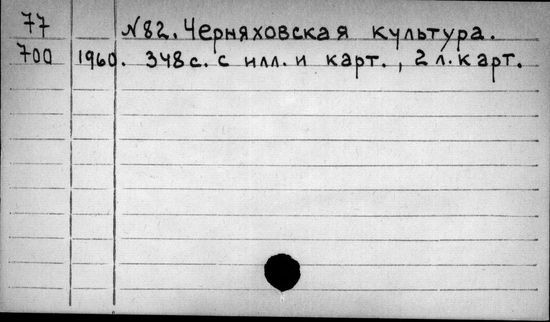 77 №82. Черняховская культура.
700 1960. 348 с. с илл. и карт., 2 л. карт.